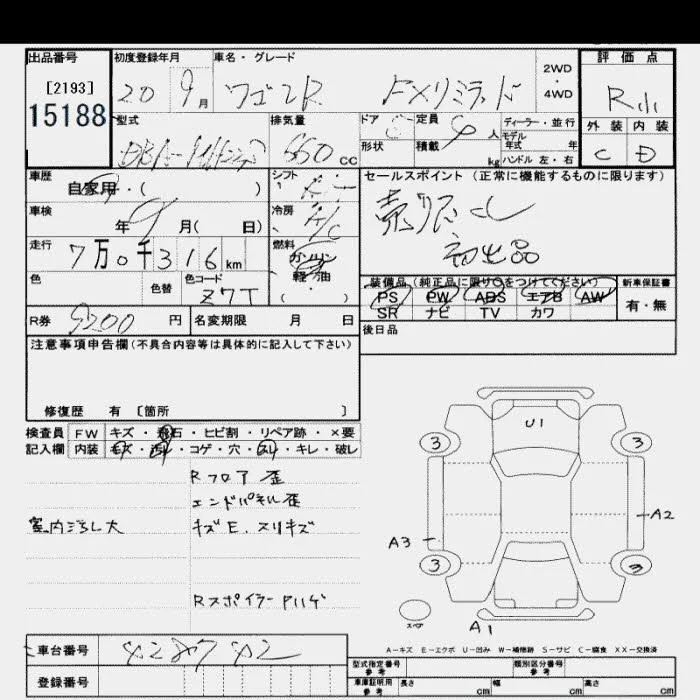 出品番号 初度登録年月 車名・グレード 2WD・4WD 評価点
[2193]
15188
20 9月 ワゴンR FXリミテッド R
型式 排気量 ドア 定員 ディーラー・並行 外装 内装
モデル年式 年
DBA- 660cc 形状 積載 4人 kg ハンドル 左・右 C D
車歴 シフト セールスポイント(正常に機能するものに限ります)
自家用・( )
車検 冷房 売り切り
年9月( 日) A/C 初出品
走行 燃料
7万0千316km ガソリン
軽・油
( )
色 色替 色コード
Z7T
装備品(純正品に限り○をつけてください) 新車保証書
PS PW ABS エアB AW 有・無
SR ナビ TV カワ
R券 9200円 名変期限 月 日 後日品
注意事項申告欄(不具合内容等は具体的に記入して下さい)
修復歴 有 〔箇所 〕
検査員 FW キズ・飛石・ヒビ割・リペア跡・×要
記入欄 内装 キズ・汚れ・コゲ・穴・スレ・キレ・破レ
Rフロア 歪
エンドパネル歪
室内汚れ大 キズE.スリキズ
Rスポイラー Pハゲ
U1
3 3
A2
A3
3 3
A1
A-キズ E-エクボ U-凹み W-補修跡 S-サビ C-腐食 XX-交換済
車台番号
登録番号
型式指定番号 参考 類別区分番号 参考
車庫証明用 参考 長さ cm 幅 cm 高さ cm